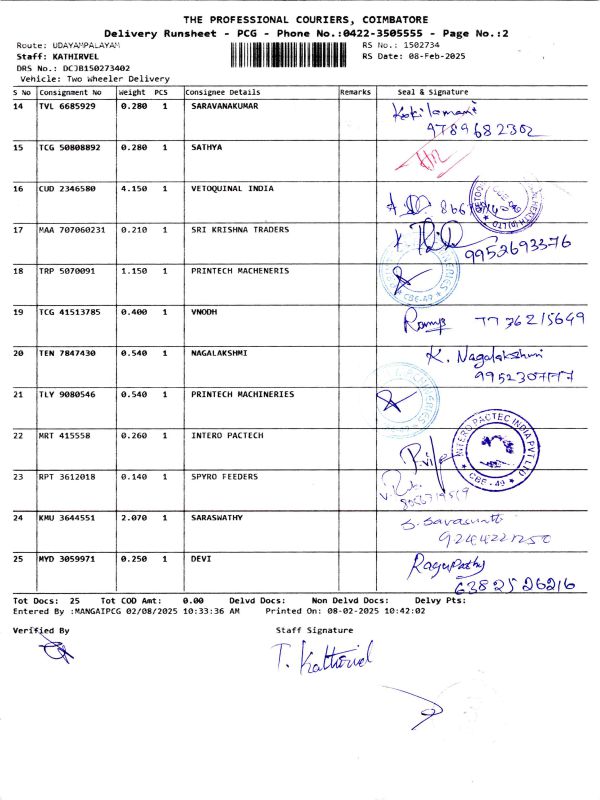 THE PROFESSIONAL COURIERS, COIMBATORE
Delivery Runsheet - PCG - Phone No.:0422-3505555 - Page No.:2
Route: UDAYAMPALAYAM RS No.: 1502734
Staff: KATHIRVEL RS Date: 08-Feb-2025
DRS No.: DCJB150273402
Vehicle: Two Wheeler Delivery
S No Consignment No Weight PCS Consignee Details Remarks Seal & Signature
14 TVL 6685929 0.280 1 SARAVANAKUMAR Kokilamani
9789682302
15 TCG 50808892 0.280 1 SATHYA
16 CUD 2346580 4.150 1 VETOQUINAL INDIA
17 MAA 707060231 0.210 1 SRI KRISHNA TRADERS
9952693376
18 TRP 5070091 1.150 1 PRINTECH MACHENERIS
CBE-49
19 TCG 41513785 0.400 1 VNODH
20 TEN 7847430 0.540 1 NAGALAKSHMI K. Nagalakshmi
21 TLY 9080546 1 0.540 PRINTECH MACHINERIES
22 MRT 415558 0.260 1 INTERO PACTECH
INTERO PACTEC INDIA PVT LTD
CBE - 49
23 RPT 3612018 0.140 1 SPYRO FEEDERS
24 KMU 3644551 2.070 1 SARASWATHY
25 MYD 3059971 0.250 1 DEVI Ragupathy
6382526216
Tot Docs: 25 Tot COD Amt: 0.00 Delvd Docs: Non Delvd Docs: Delvy Pts:
Entered By :MANGAIPCG 02/08/2025 10:33:36 AM Printed On: 08-02-2025 10:42:02
Verified By Staff Signature
T. Kathirvel